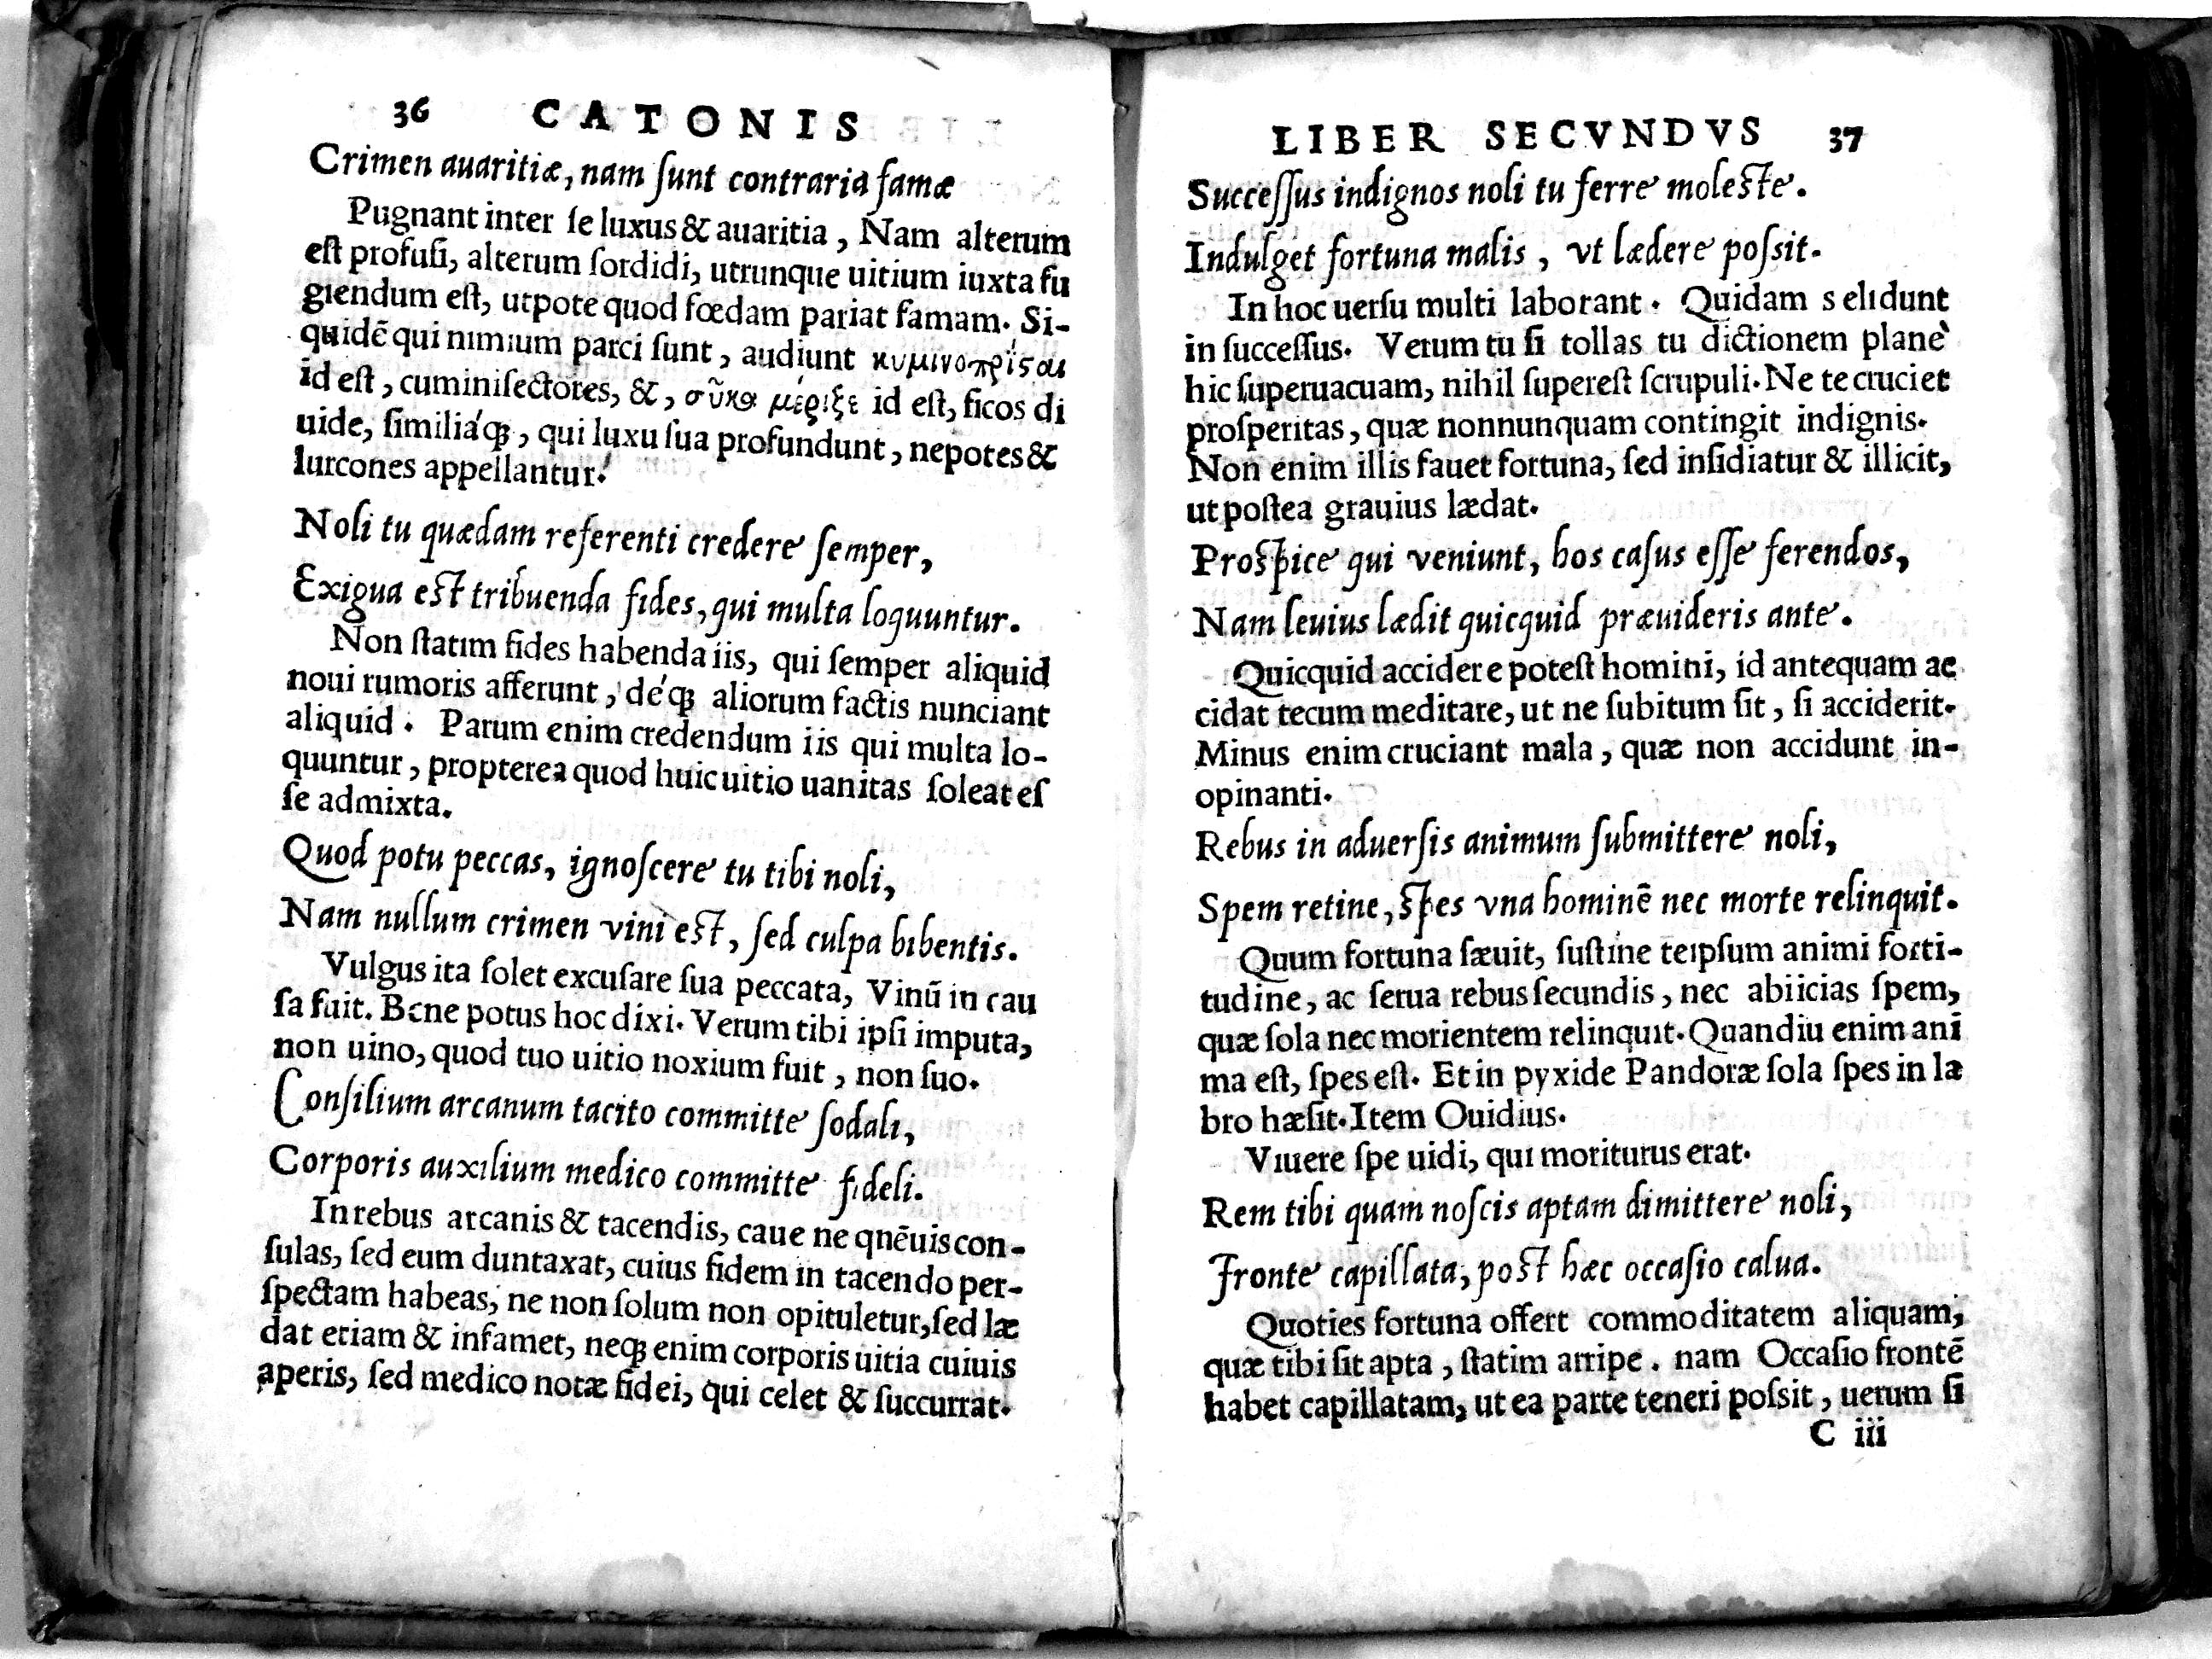 36 CATONIS
Crimen auaritiæ, nam ſunt contraria famæ
Pugnant inter ſe luxus & auaritia, Nam alterum
eſt profuſi, alterum ſordidi, utrunque uitium iuxta fu
giendum eſt, utpote quod fœdam pariat famam. Si-
quidē qui nimium parci ſunt, audiunt κυμινοπρίςαι
id eſt, cuminiſectores, &, σῦκα μέριξε id eſt, ficos di
uide, ſimiliáqꝫ, qui luxu ſua profundunt, nepotes &
lurcones appellantur.
Noli tu quædam referenti credere ſemper,
Exigua eſt tribuenda fides, qui multa loquuntur.
Non ſtatim fides habenda iis, qui ſemper aliquid
noui rumoris afferunt, déqꝫ aliorum factis nunciant
aliquid. Parum enim credendum iis qui multa lo-
quuntur, propterea quod huic uitio uanitas ſoleat eſ
ſe admixta.
Quod potu peccas, ignoſcere tu tibi noli,
Nam nullum crimen vini eſt, ſed culpa bibentis.
Vulgus ita ſolet excuſare ſua peccata, Vinū in cau
ſa fuit. Bene potus hoc dixi. Verum tibi ipſi imputa,
non uino, quod tuo uitio noxium fuit, non ſuo.
Conſilium arcanum tacito committe ſodali,
Corporis auxilium medico committe fideli.
In rebus arcanis & tacendis, caue ne qnēuis con-
ſulas, ſed eum duntaxat, cuius fidem in tacendo per-
ſpectam habeas, ne non ſolum non opituletur, ſed læ
dat etiam & infamet, neqꝫ enim corporis uitia cuiuis
aperis, ſed medico notæ fidei, qui celet & ſuccurrat.
LIBER SECVNDVS 37
Succeſſus indignos noli tu ferre moleſte.
Indulget fortuna malis, vt lædere poſsit.
In hoc uerſu multi laborant. Quidam s elidunt
in ſucceſſus. Verum tu ſi tollas tu dictionem planè
hic ſuperuacuam, nihil ſupereſt ſcrupuli. Ne te cruciet
proſperitas, quæ nonnunquam contingit indignis.
Non enim illis fauet fortuna, ſed inſidiatur & illicit,
ut poſtea grauius lædat.
Proſpice qui veniunt, hos caſus eſſe ferendos,
Nam leuius lædit quicquid præuideris ante.
Quicquid accidere poteſt homini, id antequam ac
cidat tecum meditare, ut ne ſubitum ſit, ſi acciderit.
Minus enim cruciant mala, quæ non accidunt in-
opinanti.
Rebus in aduerſis animum ſubmittere noli,
Spem retine, ſpes vna hominē nec morte relinquit.
Quum fortuna ſæuit, ſuſtine teipſum animi forti-
tudine, ac ſerua rebus ſecundis, nec abiicias ſpem,
quæ ſola nec morientem relinquit. Quandiu enim ani
ma eſt, ſpes eſt. Et in pyxide Pandoræ ſola ſpes in la
bro hæſit. Item Ouidius.
Viuere ſpe uidi, qui moriturus erat.
Rem tibi quam noſcis aptam dimittere noli,
Fronte capillata, poſt hæc occaſio calua.
Quoties fortuna offert commoditatem aliquam,
quæ tibi ſit apta, ſtatim arripe. nam Occaſio frontē
habet capillatam, ut ea parte teneri poſsit, uerum ſi
C iii